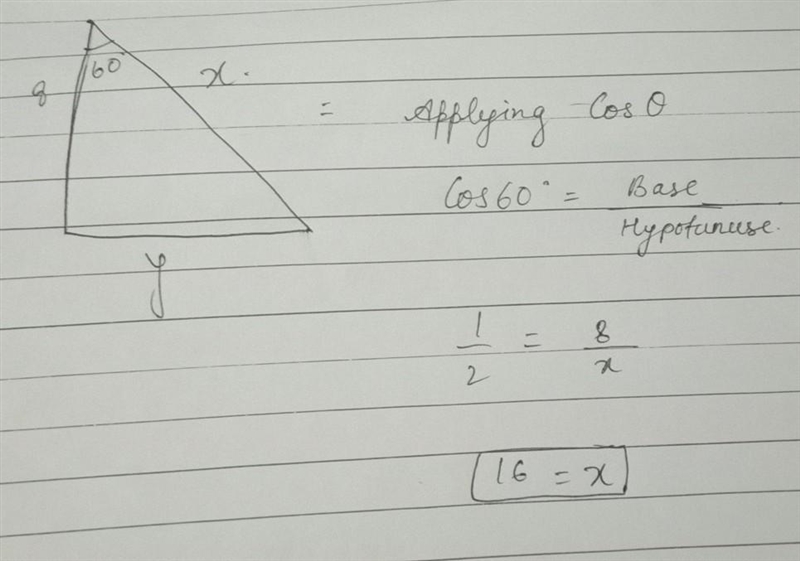 60°
8
x.
= Applying Cos θ
Cos 60° = Base / Hypotanuse.
y
1/2 = 8/x
16 = x